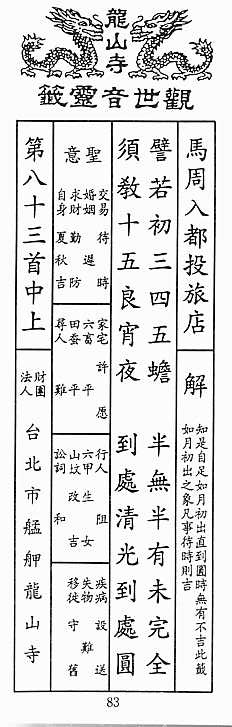 龍山寺
觀世音靈籤
馬周入都投旅店
解
知是自足如月初出直到圓時無有不吉此籤
如月初出之象凡事待時則吉
譬若初三四五蟾 半無半有未完全
須教十五良宵夜 到處清光到處圓
聖意
交易 待時
婚姻 遲
求財 勤防
自身 夏秋吉
家宅 許愿
六畜 平
田蚕 平
尋人 難
行人 阻
六甲 生女
山墳 改吉
訟詞 和
疾病 設送
失物 難
移徙 守舊
第八十三首中上
財團法人 台北市艋舺龍山寺
83